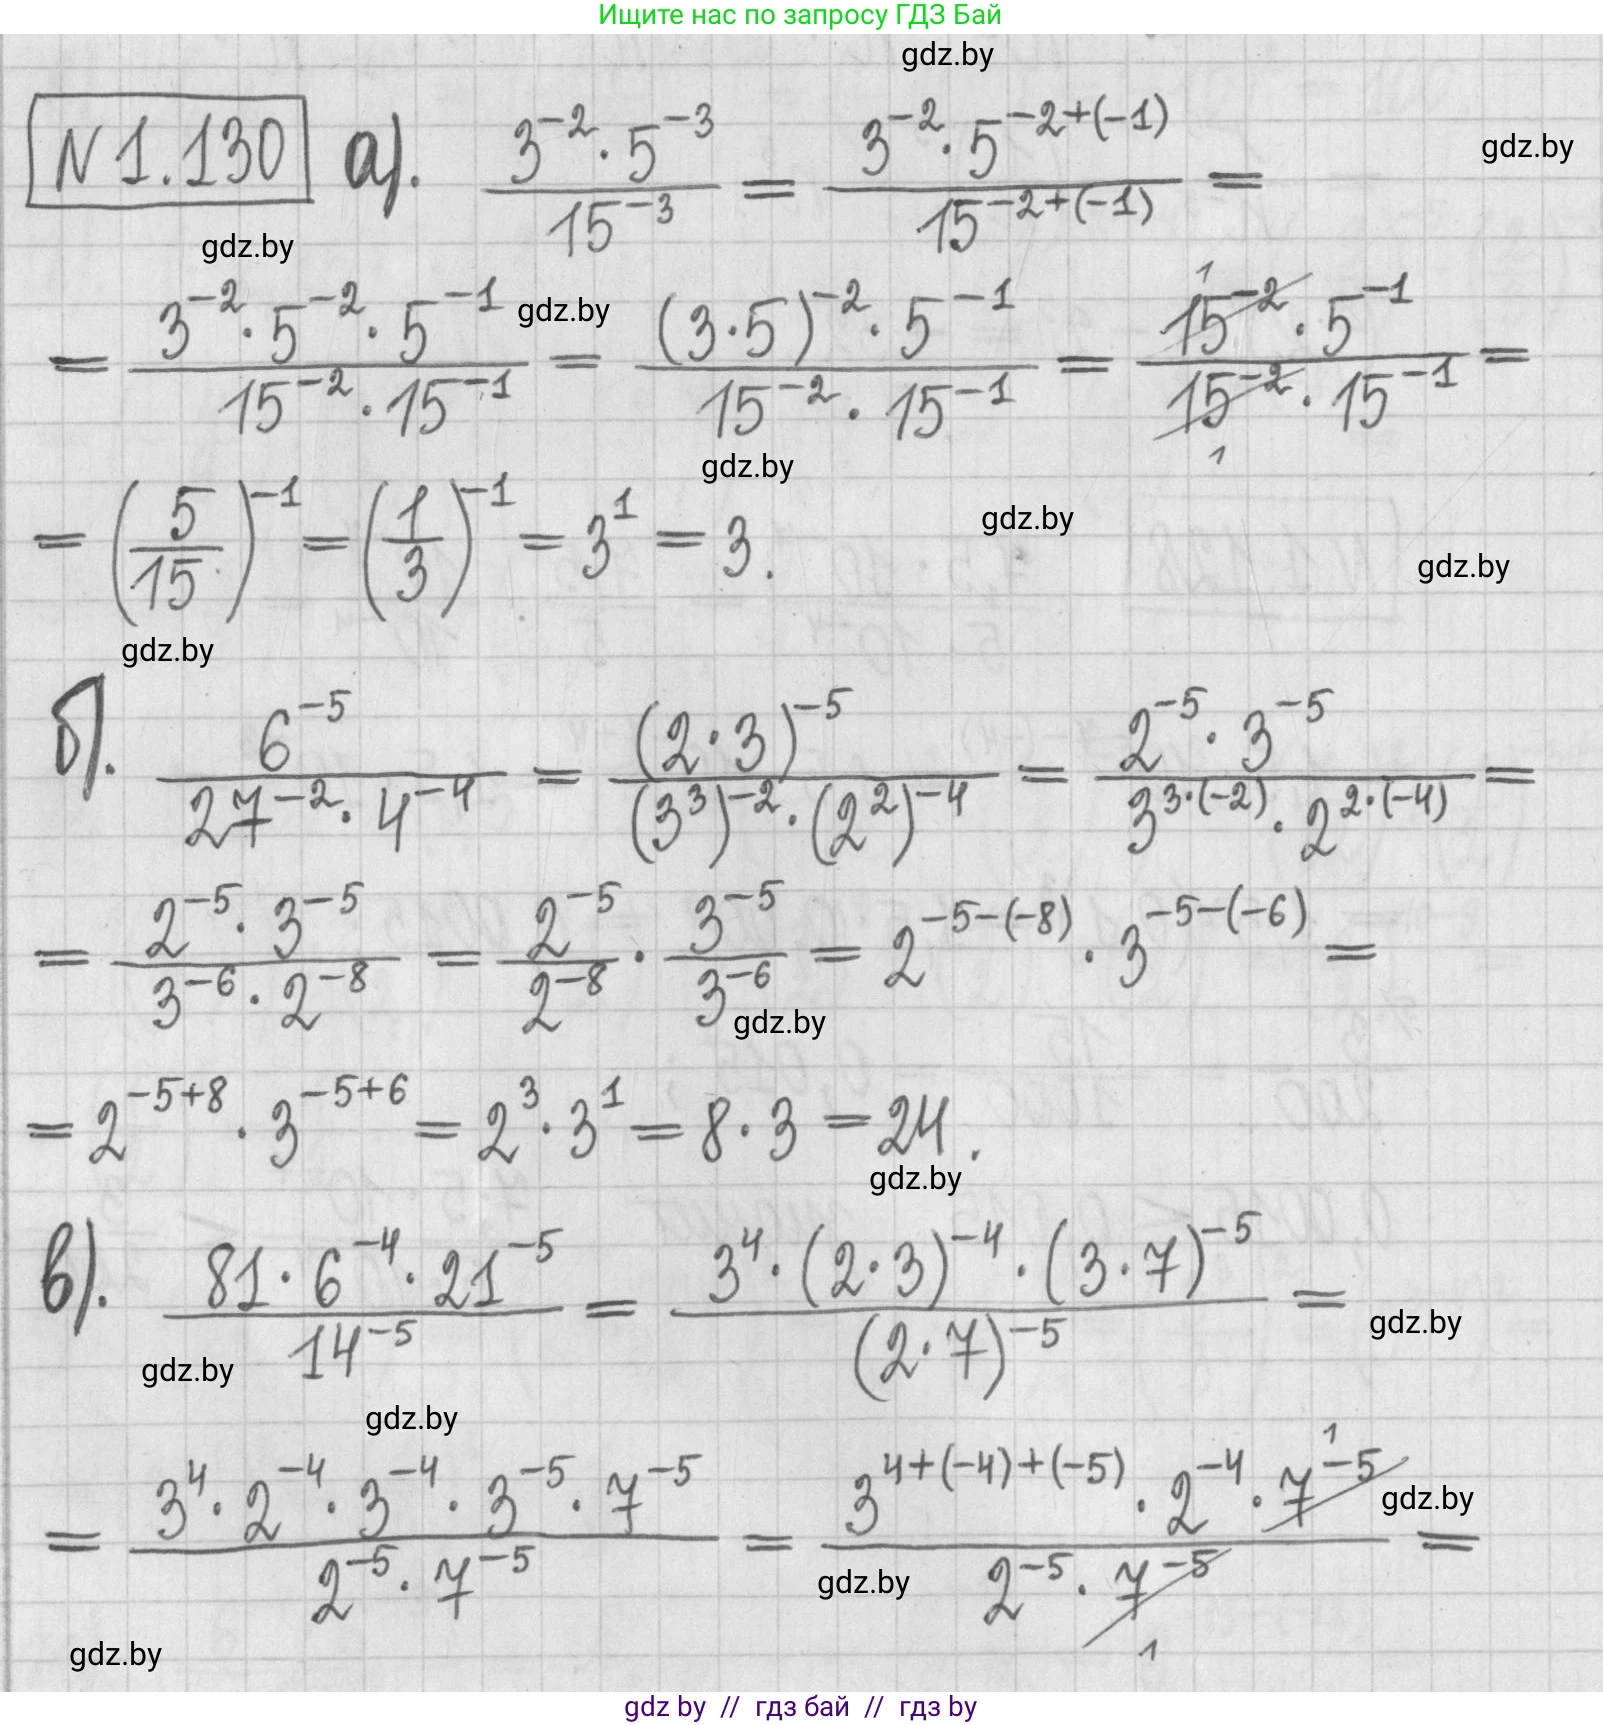 Ищите нас по запросу ГДЗ Бай
gdz.by
N 1.130 а). \frac{3^{-2} \cdot 5^{-3}}{15^{-3}} = \frac{3^{-2} \cdot 5^{-2+(-1)}}{15^{-2+(-1)}} =
gdz.by
gdz.by
= \frac{3^{-2} \cdot 5^{-2} \cdot 5^{-1}}{15^{-2} \cdot 15^{-1}} = \frac{(3 \cdot 5)^{-2} \cdot 5^{-1}}{15^{-2} \cdot 15^{-1}} = \frac{\cancel{15^{-2}}^{1} \cdot 5^{-1}}{\cancel{15^{-2}}_{1} \cdot 15^{-1}} =
gdz.by
gdz.by
= \left(\frac{5}{15}\right)^{-1} = \left(\frac{1}{3}\right)^{-1} = 3^{1} = 3.
gdz.by
gdz.by
gdz.by
б). \frac{6^{-5}}{27^{-2} \cdot 4^{-4}} = \frac{(2 \cdot 3)^{-5}}{(3^{3})^{-2} \cdot (2^{2})^{-4}} = \frac{2^{-5} \cdot 3^{-5}}{3^{3 \cdot (-2)} \cdot 2^{2 \cdot (-4)}} =
= \frac{2^{-5} \cdot 3^{-5}}{3^{-6} \cdot 2^{-8}} = \frac{2^{-5}}{2^{-8}} \cdot \frac{3^{-5}}{3^{-6}} = 2^{-5-(-8)} \cdot 3^{-5-(-6)} =
gdz.by
= 2^{-5+8} \cdot 3^{-5+6} = 2^{3} \cdot 3^{1} = 8 \cdot 3 = 24.
gdz.by
в). \frac{81 \cdot 6^{-4} \cdot 21^{-5}}{14^{-5}} = \frac{3^{4} \cdot (2 \cdot 3)^{-4} \cdot (3 \cdot 7)^{-5}}{(2 \cdot 7)^{-5}} =
gdz.by
gdz.by
gdz.by
= \frac{3^{4} \cdot 2^{-4} \cdot 3^{-4} \cdot 3^{-5} \cdot 7^{-5}}{2^{-5} \cdot 7^{-5}} = \frac{3^{4+(-4)+(-5)} \cdot 2^{-4} \cdot \cancel{7^{-5}}^{1}}{2^{-5} \cdot \cancel{7^{-5}}_{1}} =
gdz.by
gdz.by
gdz.by
gdz by // гдз бай // гдз by